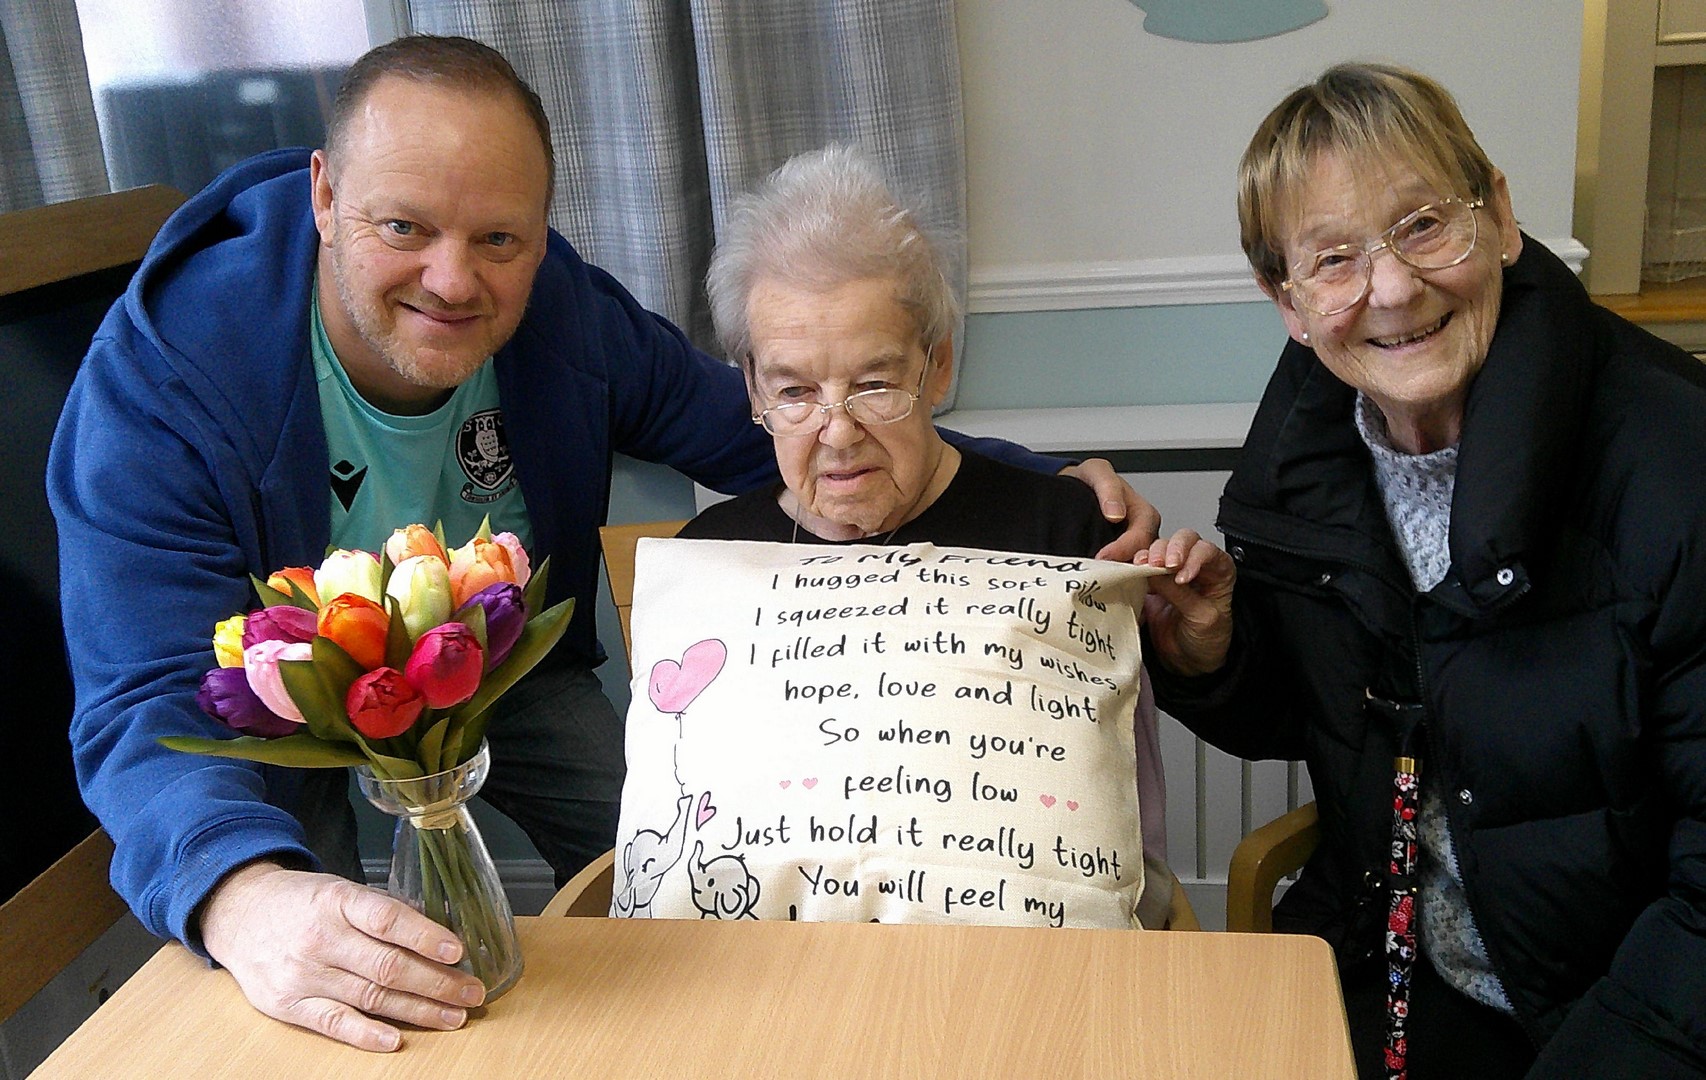 To My Friend
I hugged this soft pillow
I squeezed it really tight
I filled it with my wishes,
hope, love and light.
So when you're
feeling low
Just hold it really tight
You will feel my